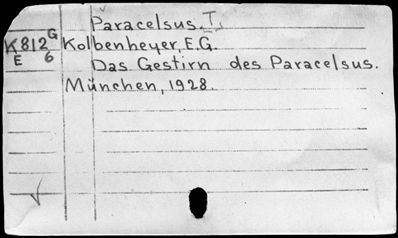 Paracelsus. I.
K812 G Kolbenheyer, E.G.
E 6 Das Gestirn des Paracelsus.
München, 1928.